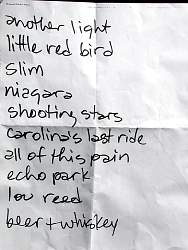 another light
little red bird
slim
niagara
shooting stars
carolina's last ride
all of this pain
echo park
lou reed
beer + whiskey